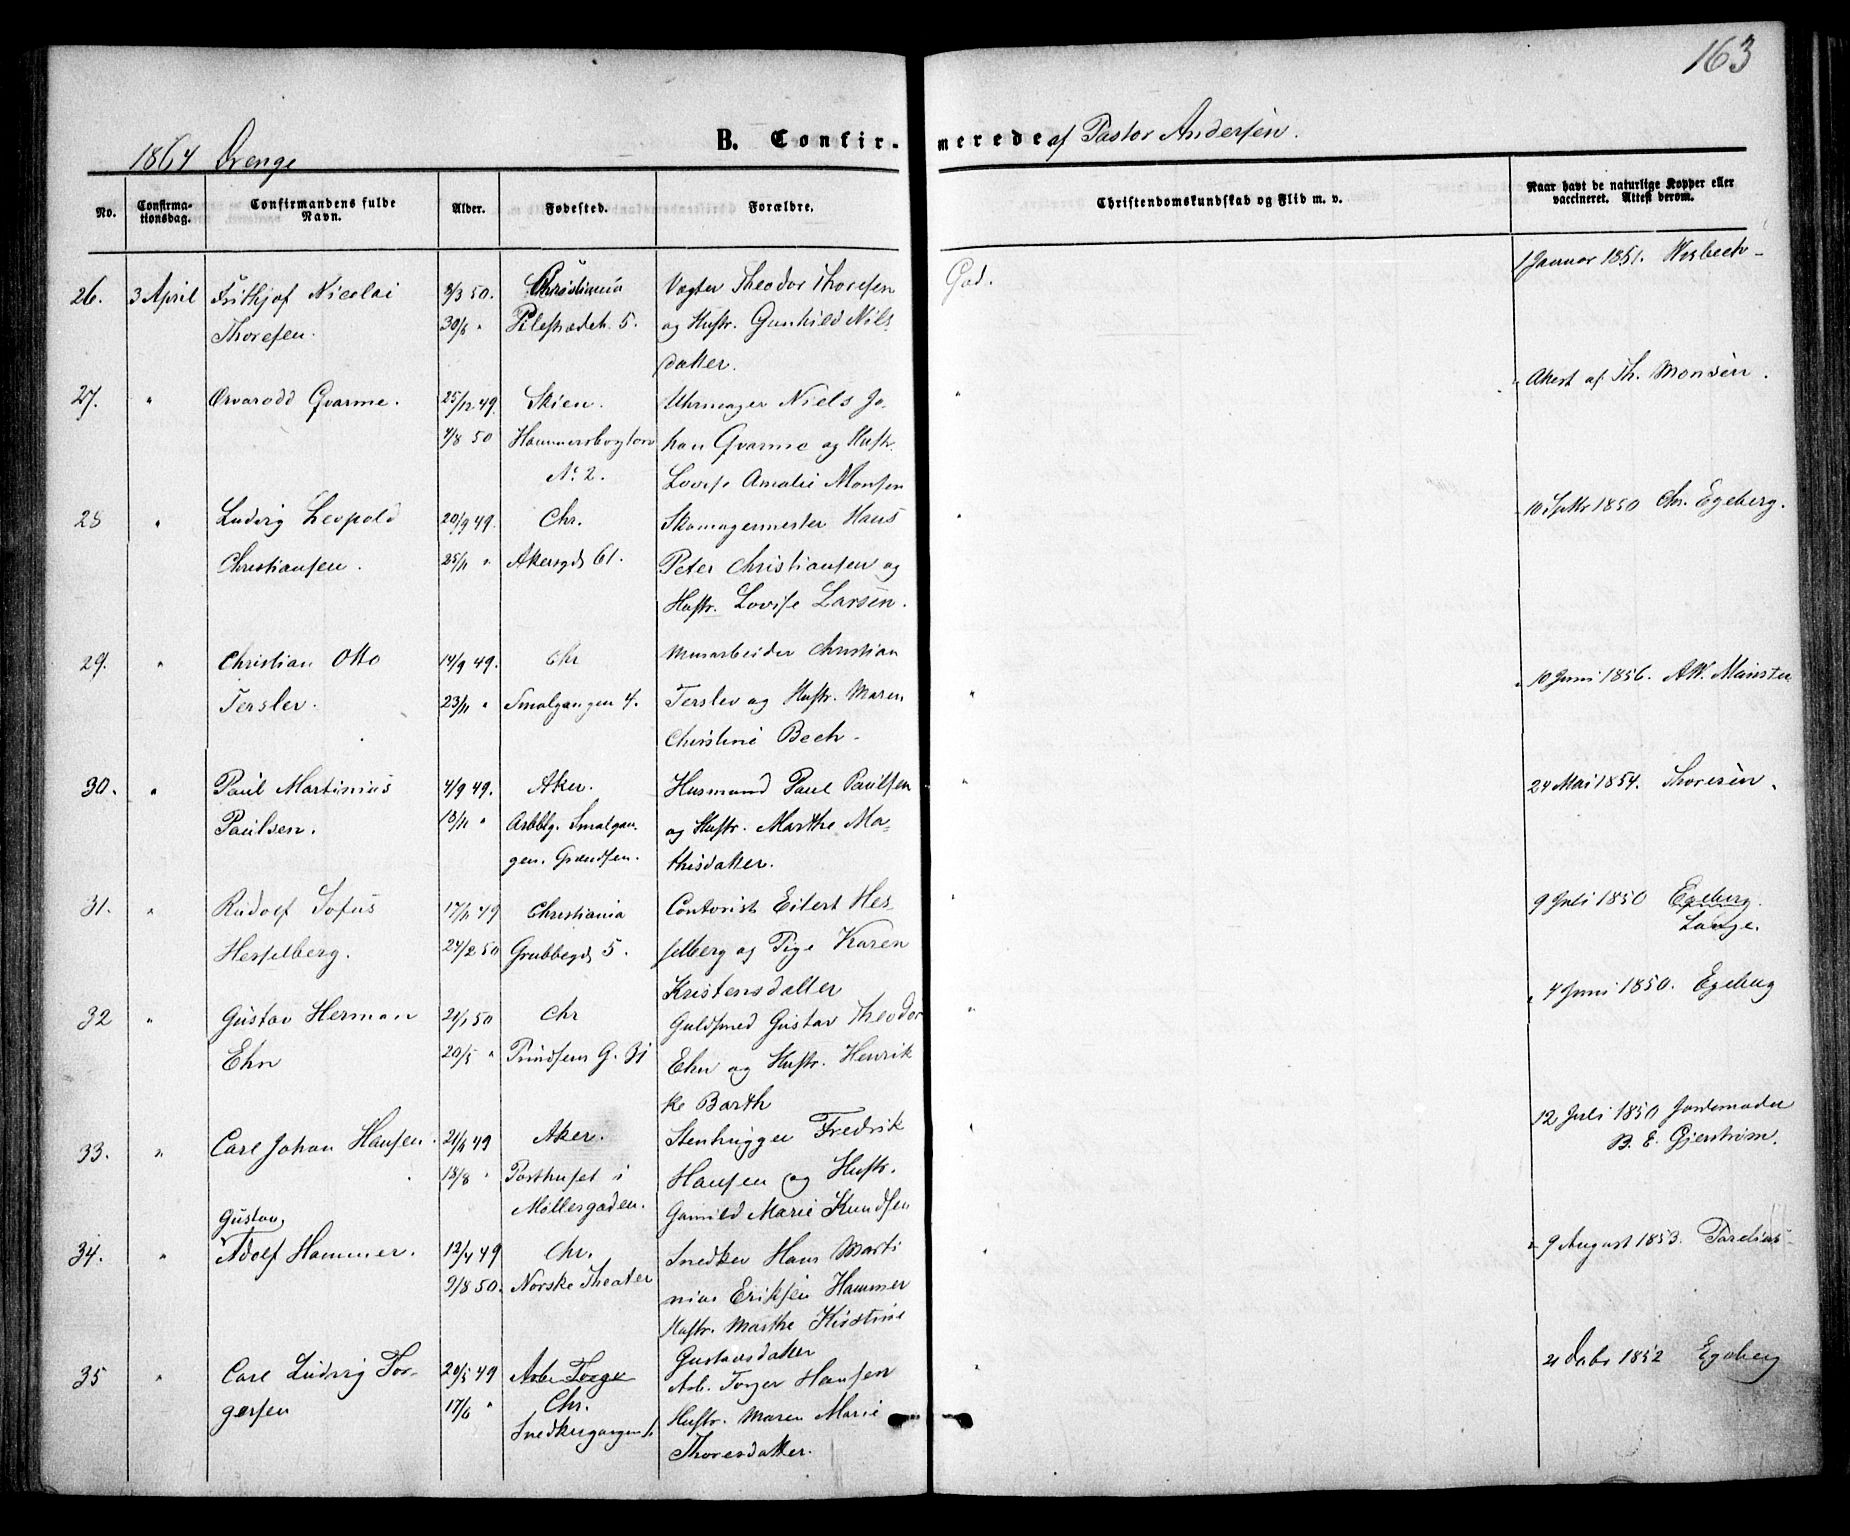 163
1864 Drenge
B. Confir-
merede af Pastor Andersen.
No.
Confirma-
tionsdag.
Confirmandens fulde
Navn.
Alder.
Fødested.
Forældre.
Christendomskundskab og Flid m. v.
Naar havt de naturlige Kopper eller
vaccineret. Attest derom.
26. 3 April Frithjof Nicolai 3/3 50. Christiania Vægter Theodor Thoresen God. 1 Januar 1851. Wisbech
Thoresen. 30/5 " Pilestrædet. 5. og Hustr. Gunhild Nils
datter.
27. " Orvarodd Qvarme. 25/12 49. Skien. Uhrmager Niels Jo- " Attest af Th. Monsen.
4/8 50 Hammersborgtorv han Qvarme og Hustr.
No 2. Lovise Amalie Monsen
28 " Ludvig Leopold 20/9 49. Chr. Skomagermester Hans " 10 Sptbr 1850 Chr. Egeberg.
Christiansen. 25/11 " Akersgd. 61. Peter Christiansen og
Hustr. Lovise Larsen.
29. " Christian Otto 14/9 49. Chr Murarbeider Christian
Terslev. 23/11 " Smalgangen 4. Terslev og Hustr. Maren " 10 Juni 1856. AW. Münster
Christine Bech.
30. " Paul Martinius 4/9 49. Aker. Husmand Paul Paulsen " 24 Mai 1854. Thoresen.
Paulsen. 18/11 " Arbblg. Smalgan- og Hustr. Marthe Ma-
gen. Grændsen. thisdatter.
31. " Rudolf Sofus 17/11 49 Christiania Contorist Eilert Hes- " 9 Juli 1850 Egeberg.
Lange.
Hesselberg. 24/2 50 Grubbegd. 5. selberg og Pige Karen
Kristensdatter
32 " Gustav Herman 21/1 50 Chr Guldsmed Gustav Theodor " 4 Juni 1850. Egeberg
Ehn 20/5 " Prindsens G. 31 Ehn og Hustr. Henrik
ke Barth
33. " Carl Johan Hansen. 21/4 49 Aker. Stenhugger Fredrik " 12 Juli 1850 Jordemoder
B. E. Gjerstrøm.
18/8 " Posthuset i Hansen og Hustr.
Møllergaden. Gunild Marie Knudsen
Gustav,
34. " Adolf Hammer. 12/4 49 Chr. Snedker Hans Marti " 9 August 1853.
9/8 50. Norske Theater nius Eriksen Hammer
Hustr. Marthe Kisstine
Gustavsdatter
35 " Carl Ludvig Tor- 20/5 49 Arb. Torger Arb. Torger Hansen " 21 Debr 1852 Egeberg
gersen 17/6 " Chr. Hustr. Maren Marie
Snedkergangen Thoresdatter.